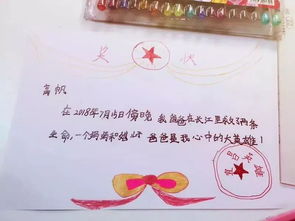 奖 状
高帆
在2018年7月15日傍晚 我爸爸在长江里救了两条
生命,一个妈妈和姐姐 爸爸是我心中的大英雄!